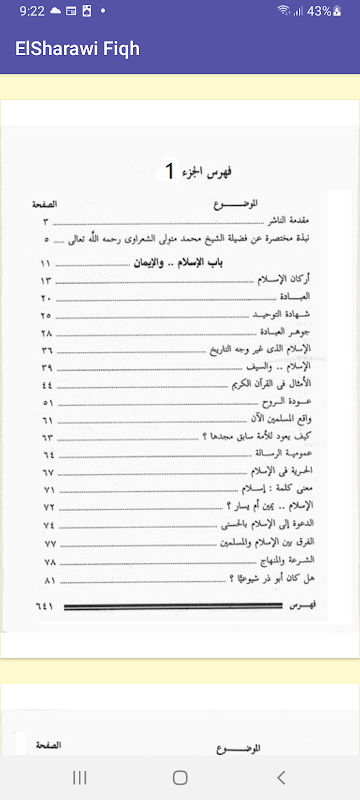 9:22
43%
ElSharawi Fiqh
فهرس الجزء 1
الموضـــــوع الصفحة
مقدمة الناشر ٣
نبذة مختصرة عن فضيلة الشيخ محمد متولى الشعراوى رحمه اللَّه تعالى ٥
باب الإسلام .. والإيمان ١١
أركان الإسـلام ١٣
العبـادة ٢٠
شـهادة التوحيـد ٢٥
جوهـر العبـادة ٢٨
الإسلام الذى غير وجه التاريخ ٣٦
الإسلام .. والسيف ٣٩
الأمثال فى القرآن الكريم ٤٤
عـودة الـروح ٥١
واقع المسلمين الآن ٦١
كيف يعود للأمة سابق مجدها ؟ ٦٣
عموميـة الرسـالة ٦٤
الحرية فى الإسلام ٦٧
معنى كلمة : إسـلام ٧١
الإسلام .. يمين أم يسار ؟ ٧٢
الدعوة إلى الإسلام بالحسنى ٧٤
الفرق بين الإسلام والمسلمين ٧٧
الشـرعة والمنهاج ٧٨
هل كان أبو ذر شيوعيًّا ؟ ٨١
فهـرس ٦٤١
الموضـــــوع الصفحة